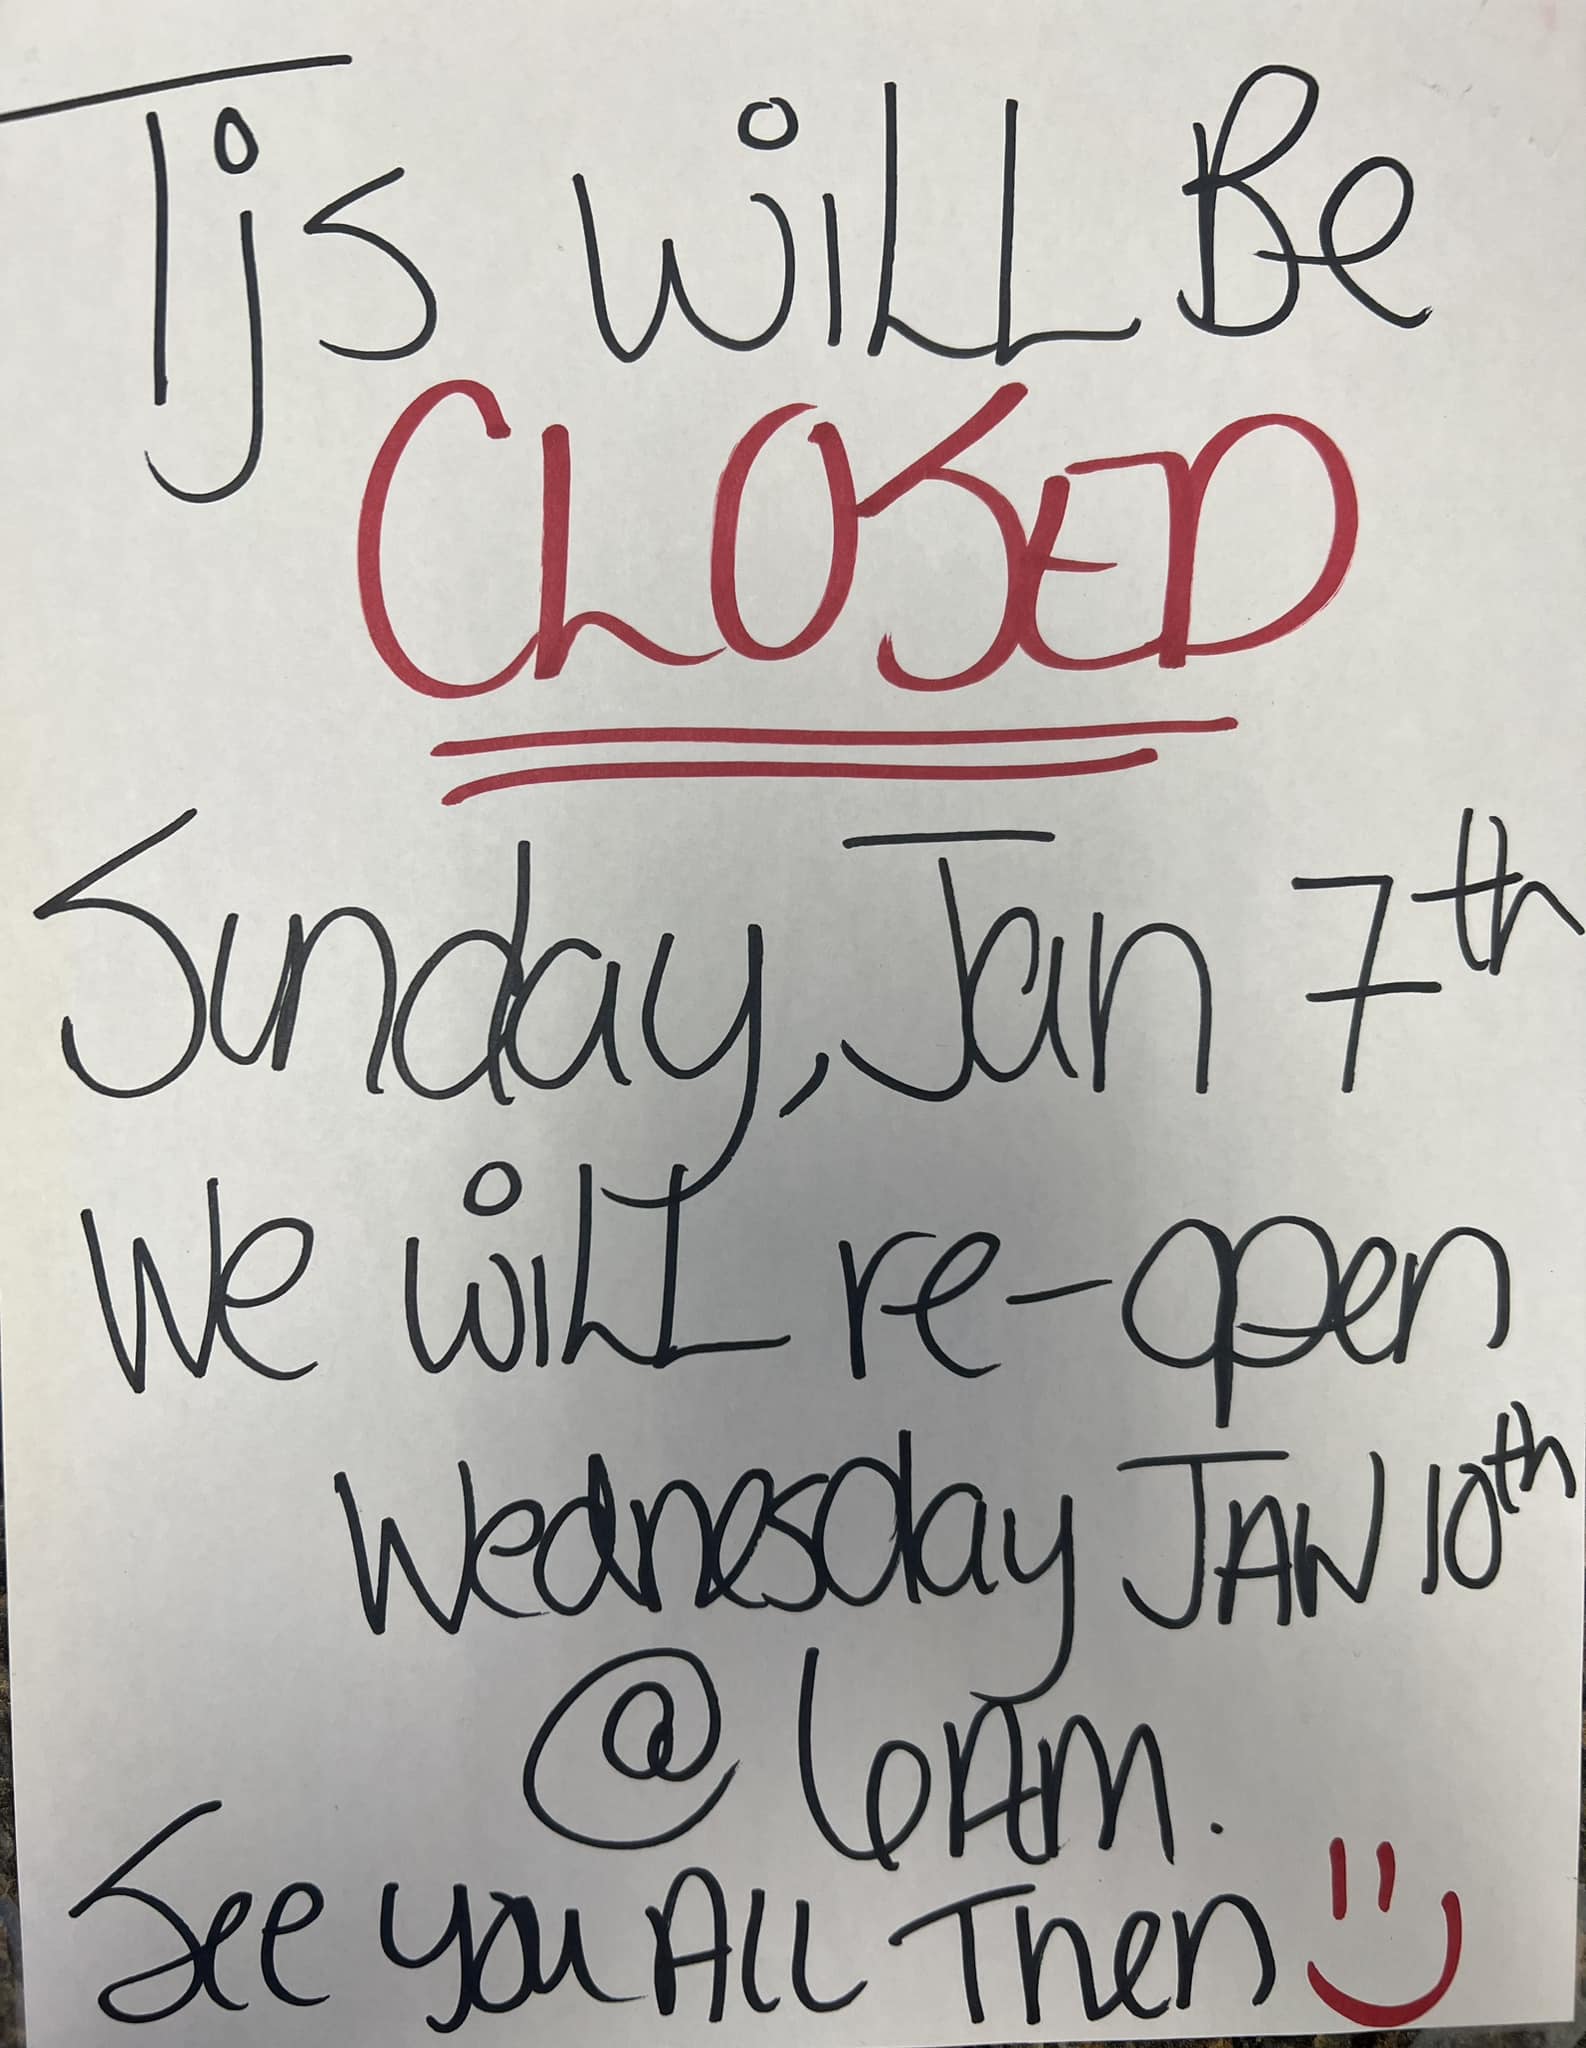 Tjs WiLL Be
CLOSED
Sunday, Jan 7th
We wiLL re-open
Wednesday JAN 10th
@ 6AM.
See you All Then